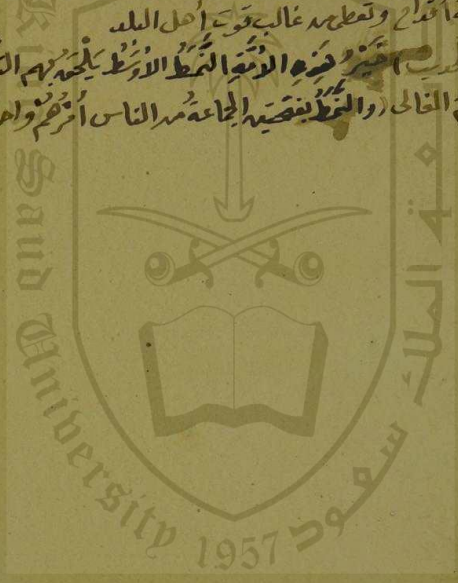 أقداح وتعطى من غالب قوت أهل البلد
خَيْرُ هَذِهِ الأُمَّةِ النَّمَطُ الأَوْسَطُ يَلْحَقُ بِهِم
الغالى (والنَّمَطُ بفتحتين الجَمَاعَةُ من الناس أَمْرُهُمْ
King Saud University 1957
جامعة الملك سعود